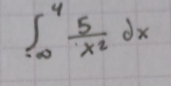 ∫_{-∞}^{4} 5/x² dx